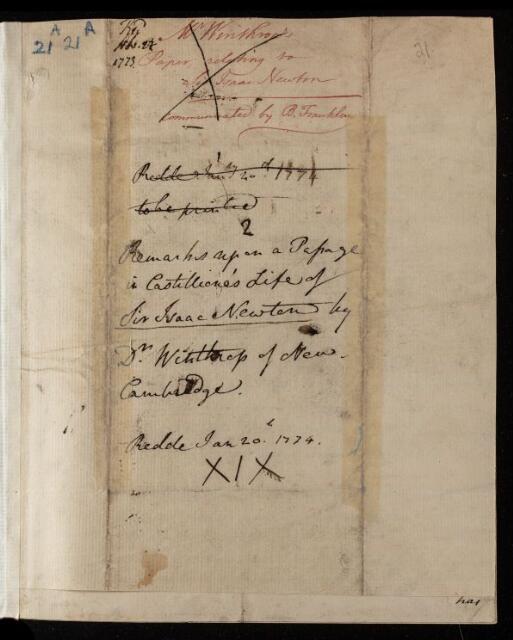 21 A 21 A
21.
Mr Winthrop
1773 Paper, relating to
Sr Isaac Newton
communicated by B. Franklin
Redde Jany 20th 1774
to be printed
2
Remarks upon a Passage
in Castillione's Life of
Sir Isaac Newton by
Dr. Winthrop of New-
Cambridge.
Redde Jan 20th 1774.
XIX